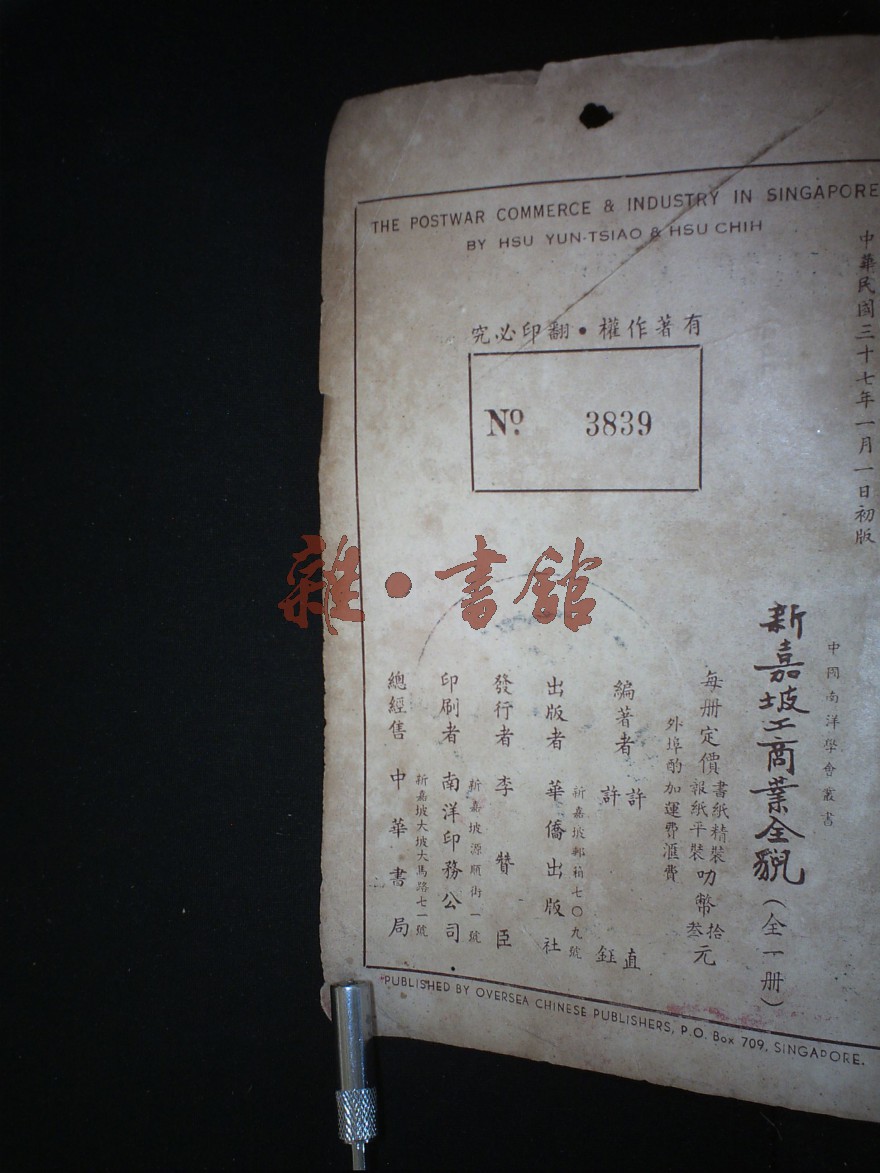 THE POSTWAR COMMERCE & INDUSTRY IN SINGAPORE
BY HSU YUN-TSIAO & HSU CHIH
有著作權•翻印必究
No. 3839
中華民國三十七年一月一日初版
中國南洋學會叢書
新嘉坡工商業全貌(全一册)
每册定價 書紙精裝 叻幣 拾元
報紙平裝 叁
外埠酌加運費滙費
編著者 許直
許鈺
出版者 華僑出版社
新嘉坡郵箱七〇九號
發行者 李贊臣
新嘉坡源順街一號
印刷者 南洋印務公司
新嘉坡大坡大馬路七一號
總經售 中華書局
PUBLISHED BY OVERSEA CHINESE PUBLISHERS, P.O. Box 709, SINGAPORE.
雜•書館